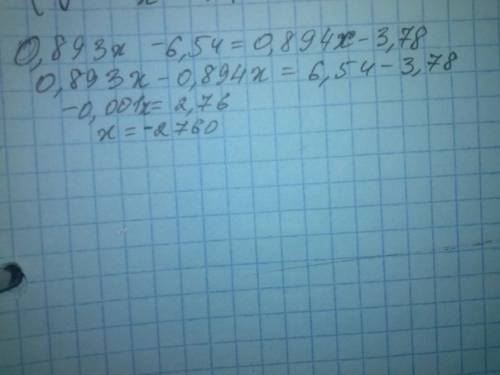 0,893x - 6,54 = 0,894x - 3,78
0,893x - 0,894x = 6,54 - 3,78
-0,001x = 2,76
x = -2760